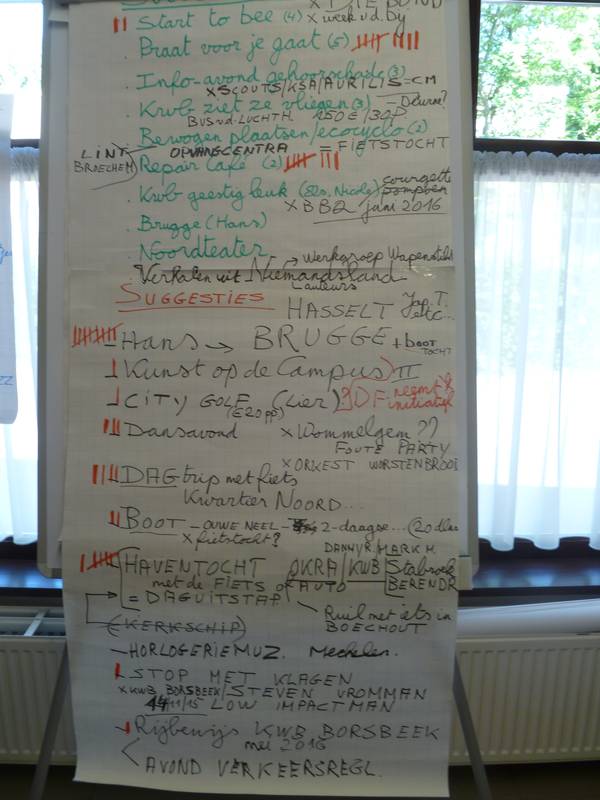 Start to bee (4) x week v.d. By
Praat voor je gaat (5)
Info-avond gehoorschade (3)
x SCOUTS/KSA/AURILIS-CM
Kwb ziet ze vliegen (3) - Deurne?
BUS v.d. LUCHTH. 150€/30P
Bewogen plaatsen/ecocyclo (2)
LINT OPVANGCENTRA = FIETSTOCHT
BROECHEM
Repair Café (2)
Kwb geestig leuk (Els, Nicole) courgette
pompoen
x BBQ juni 2016
Brugge (Hans)
Noordteater
→ Werkgroep Wapenstilst
Verhalen uit Niemandsland
Lauteurs
SUGGESTIES
HASSELT Jap. T.
etc...
- Hans → BRUGGE + boot
TOCHT
Kunst op de Campus II
CITY GOLF (Lier) JDF: neemt
(€20 pp) initiatief
Dansavond x Wommelgem ??
FOUTE PARTY
x ORKEST WORSTENBROOD
DAGtrip met fiets
Kwartier NOORD...
BOOT - OUWE NEEL - 2-daagse... (20 dlns
x fietstocht?
DANNY R. MARK H.
HAVENTOCHT OKRA/KWB Stabroek
met de FIETS of AUTO BERENDR
= DAGUITSTAP
Ruil met iets in
BOECHOUT
(KERKSCHIP)
- HORLOGERIEMUZ. Mechelen.
- STOP MET KLAGEN
x KWB BORSBEEK/STEVEN VROMMAN
14/11/15 LOW IMPACT MAN
- Rijbewijs KWB BORSBEEK
mei 2016
AVOND VERKEERSREGL.